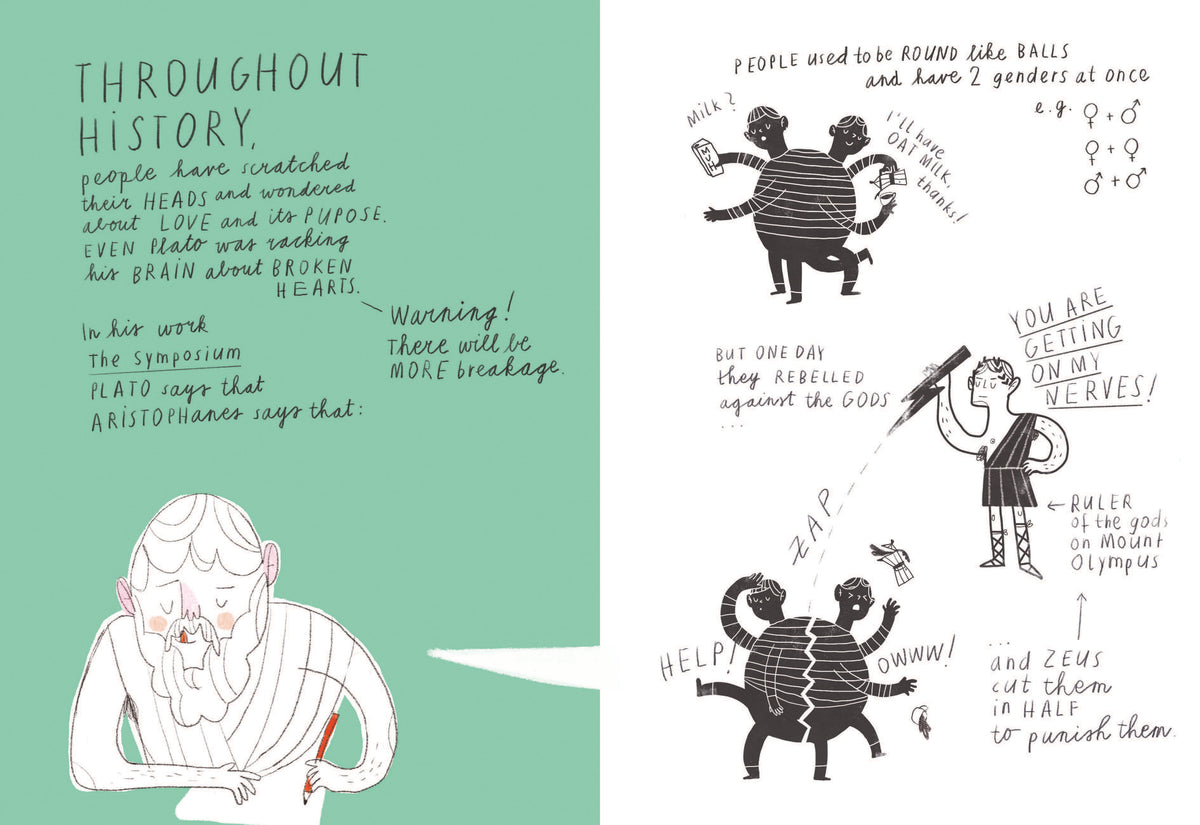 THROUGHOUT
HISTORY,
people have scratched
their HEADS and wondered
about LOVE and its PUPOSE.
EVEN Plato was racking
his BRAIN about BROKEN
HEARTS.
Warning!
There will be
MORE breakage.
In his work
The Symposium
PLATO says that
ARISTOPHanes says that:
PEOPLE used to be ROUND like BALLS
and have 2 genders at once
e.g. ♀ + ♂
♀ + ♀
♂ + ♂
MiLK?
MUH
I'LL have
OAT MILK,
thanks!
BUT ONE DAY
they REBELLED
against the GODS
...
YOU ARE
GETTING
ON MY
NERVES!
ZAP
← RULER
of the gods
on Mount
Olympus
HELP!
OWWW!
...
and ZEUS
cut them
in HALF
to punish them.